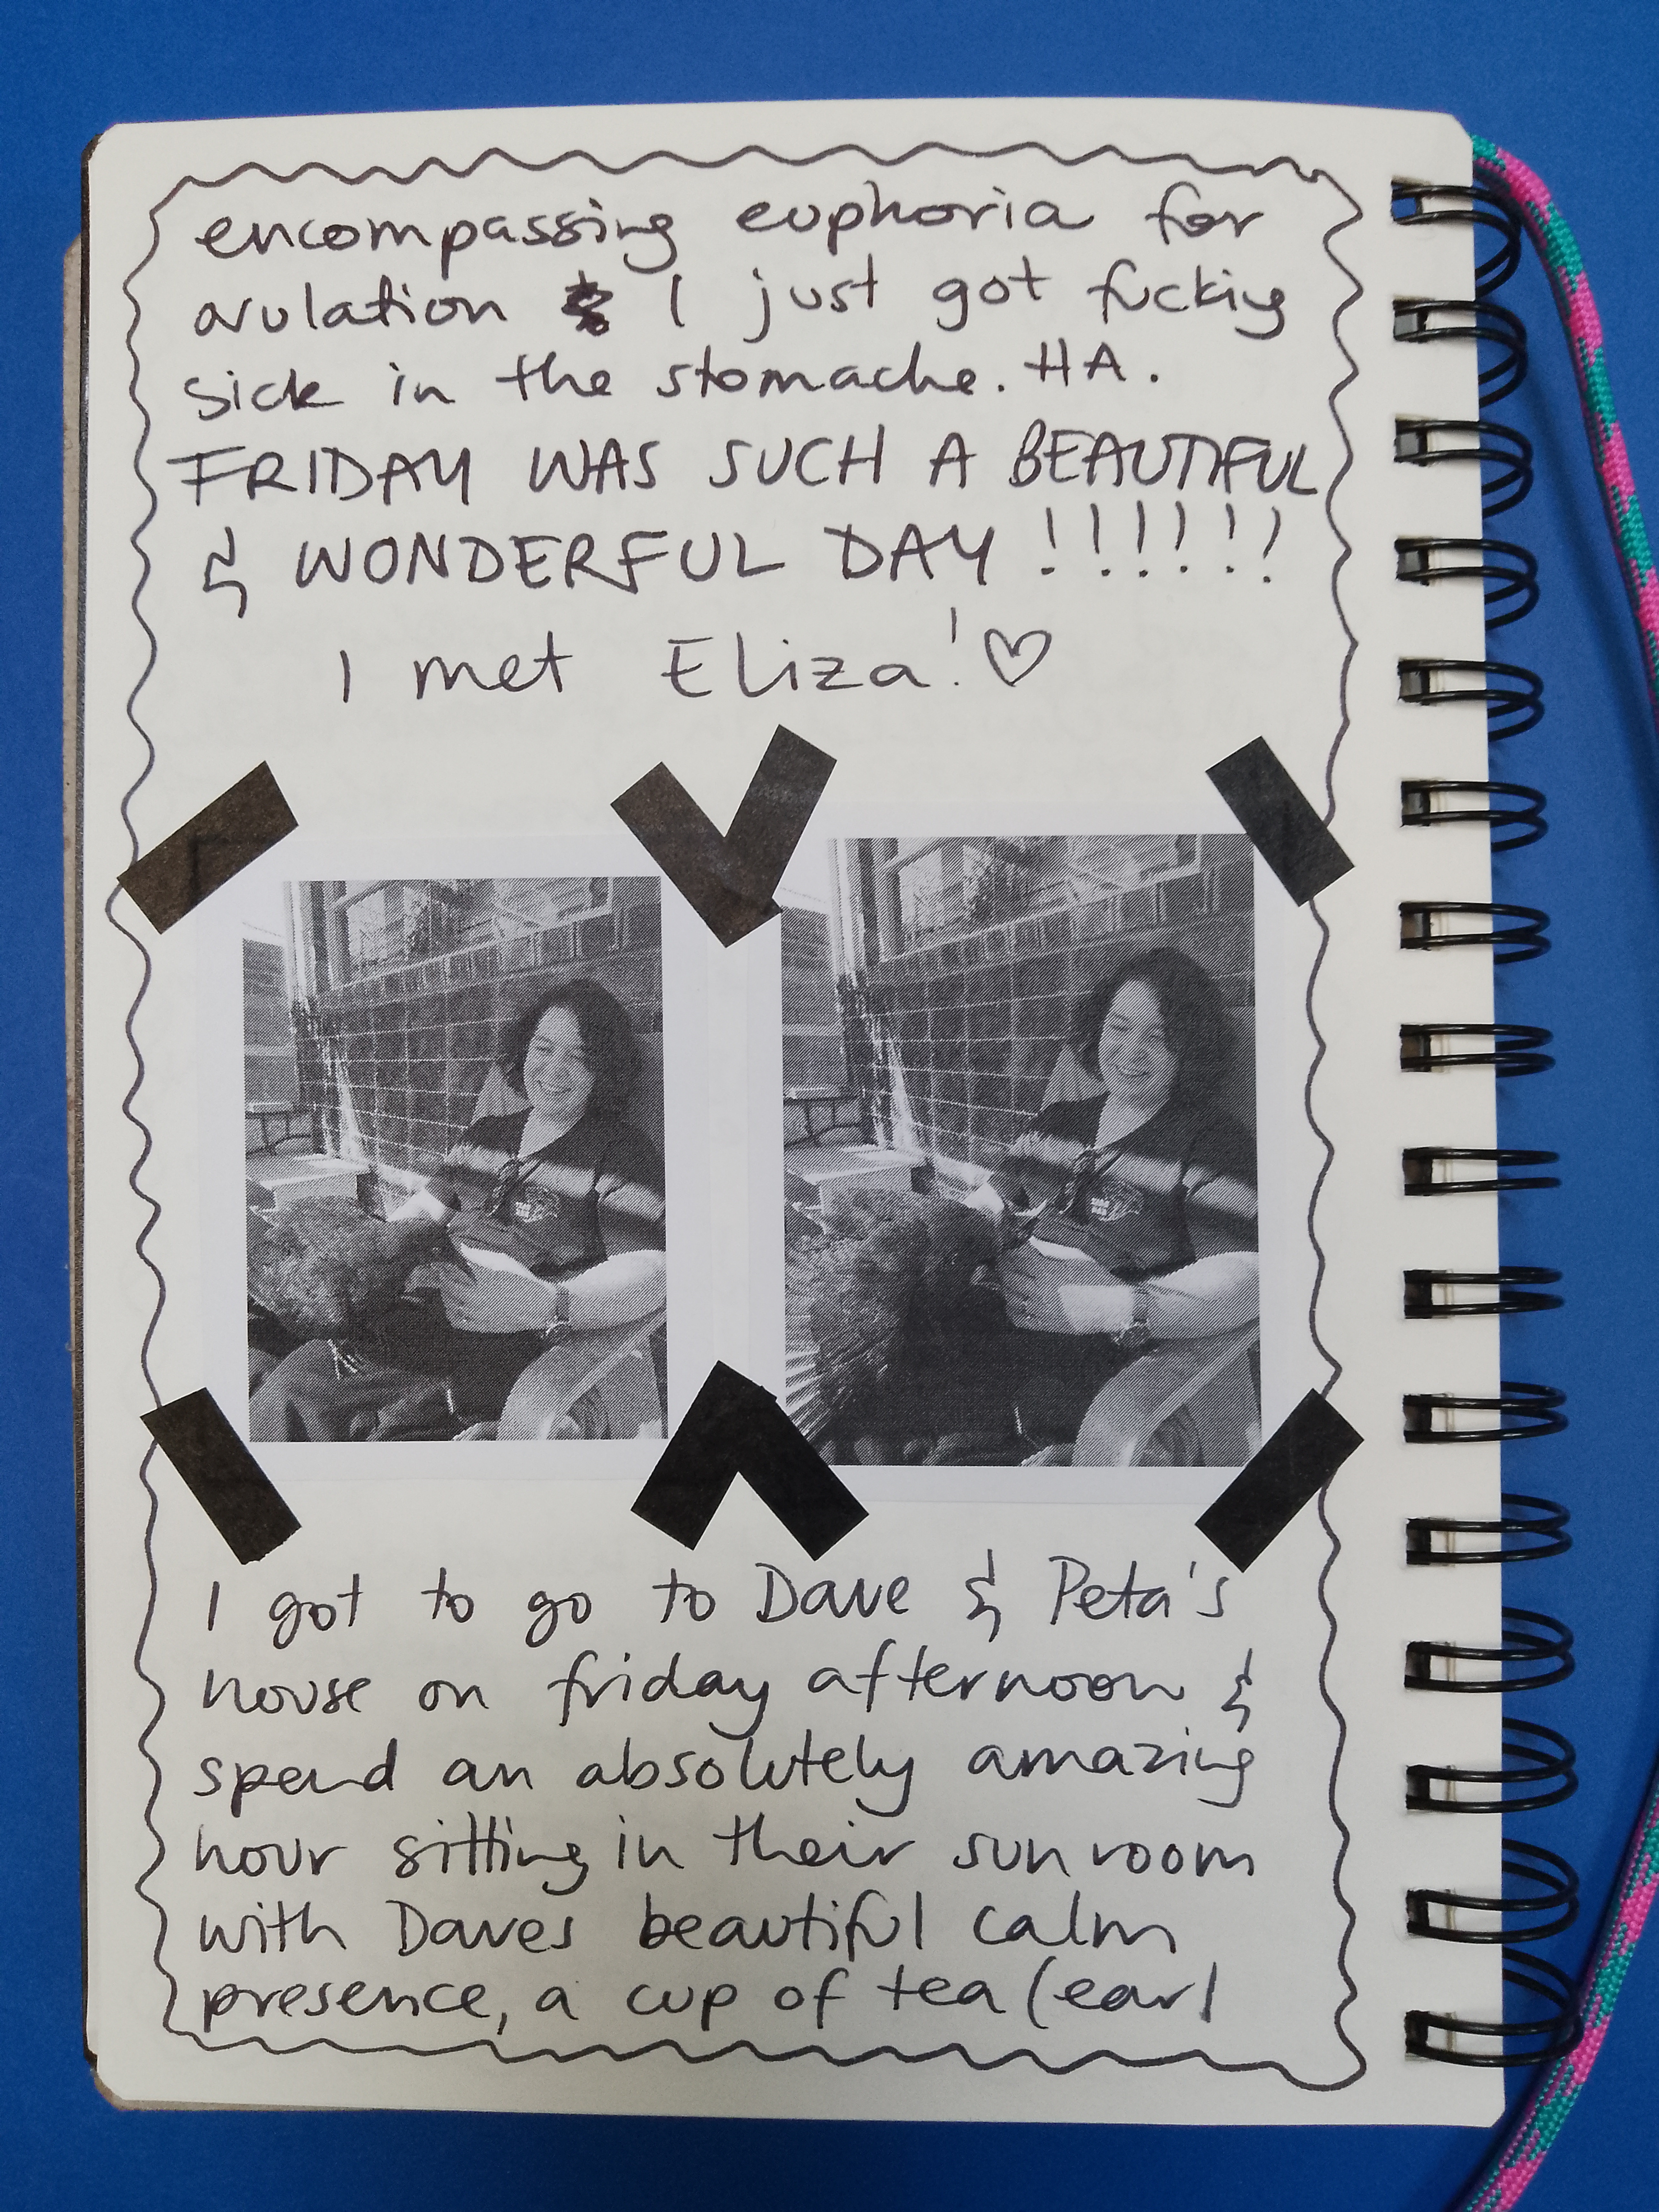 encompassing euphoria for
ovulation & I just got fucking
sick in the stomache. HA.
FRIDAY WAS SUCH A BEAUTIFUL
& WONDERFUL DAY !!!!!!
I met Eliza! ♡
I got to go to Dave & Peta's
house on friday afternoon &
spend an absolutely amazing
hour sitting in their sun room
with Daves beautiful calm
presence, a cup of tea (earl